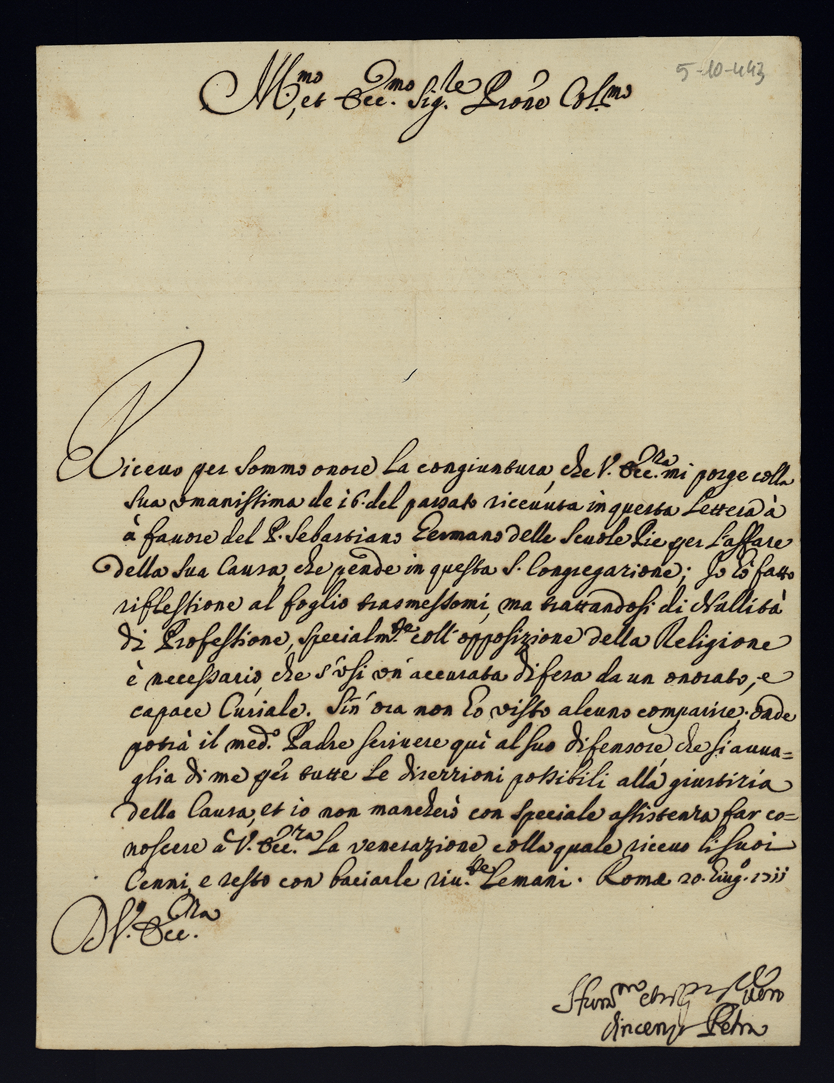 5-10-443
Ill.mo, et Ecc.mo Sig.re Prone Col.mo
Ricevo per sommo onore la congiuntura, che V. Ecc.za mi porge colla
sua umanissima de 16. del passato ricevuta in questa Lettera à
à favore del P. Sebastiano Germano delle Scuole Pie per l'affare
della sua Causa, che pende in questa S. Congregazione; Io hò fatto
riflessione al foglio trasmessomi, ma trattandosi di Nullità
di Professione, specialm.te coll'opposizione della Religione
è necessario, che s'usi un'accurata difesa da un onorato, e
capace Curiale. Sin'ora non hò visto alcuno comparire. onde
potrà il med.o Padre scrivere quì al suo difensore che si avva=
glia di me per tutte le discrezioni possibili alla giustizia
della Causa, et io non mancherò con speciale assistenza far co=
noscere à V. Ecc.za la venerazione colla quale ricevo li suoi
Cenni, e resto con baciarle riv.te le mani. Roma 20. Giug.o 1711
D V. Ecc.za
vero
Vincenzo Petra